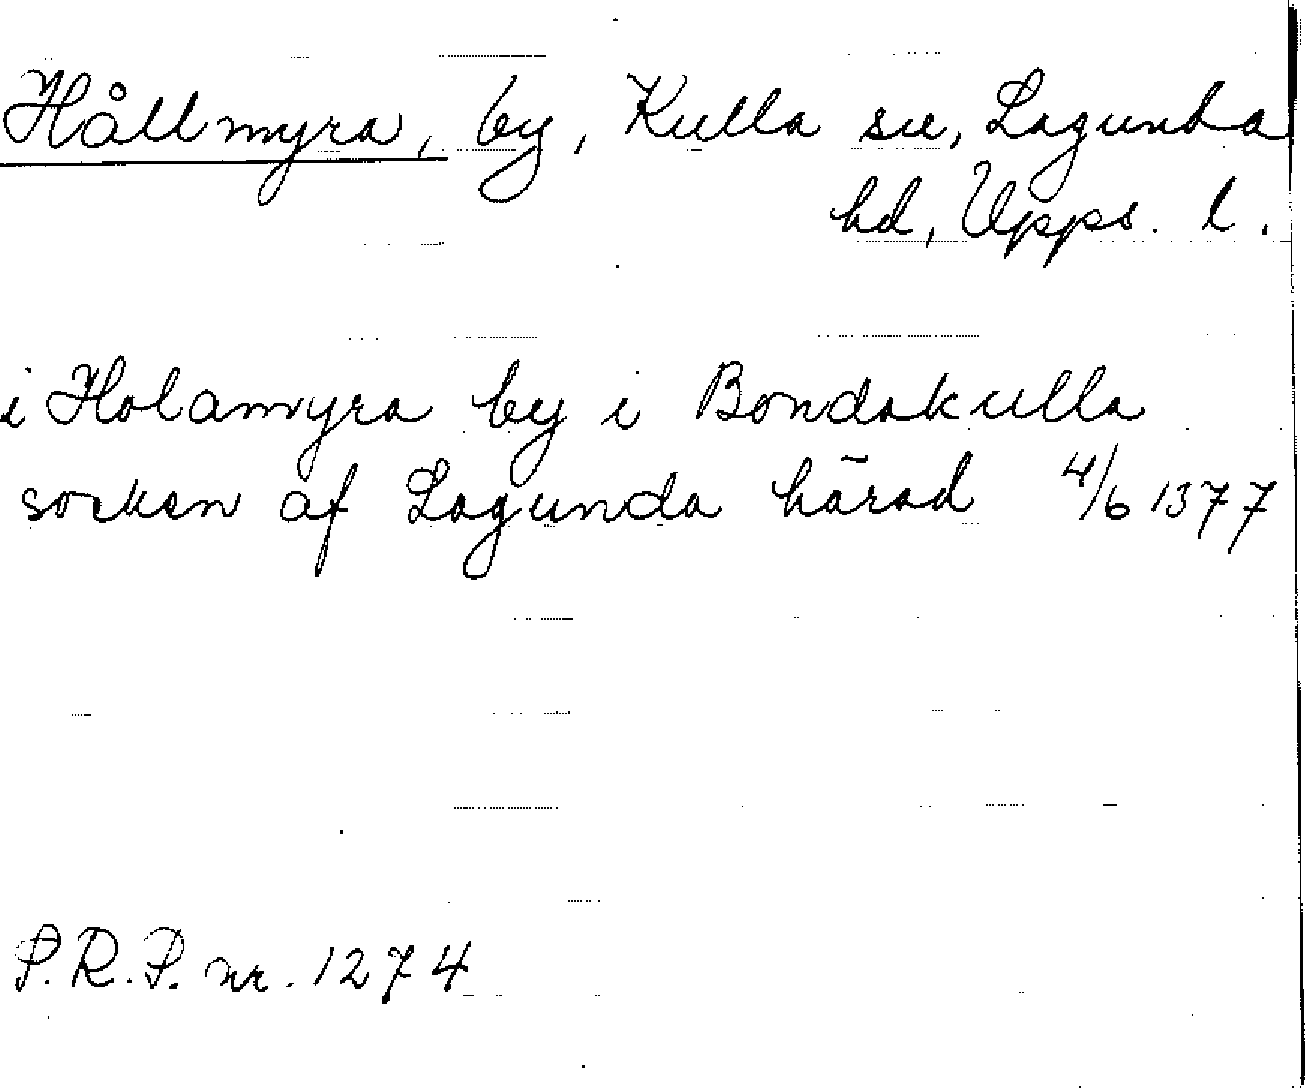 Hållmyra, by, Kulla sn, Lagunda
hd, Upps. l.
i Holamyra by i Bondakulla
socken af Lagunda härad 4/6 1377
S.R.P. nr. 1274